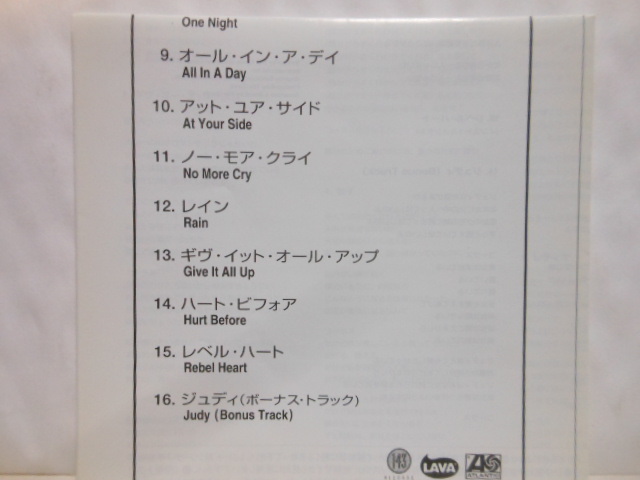 One Night
9. オール・イン・ア・デイ
All In A Day
10. アット・ユア・サイド
At Your Side
11. ノー・モア・クライ
No More Cry
12. レイン
Rain
13. ギヴ・イット・オール・アップ
Give It All Up
14. ハート・ビフォア
Hurt Before
15. レベル・ハート
Rebel Heart
16. ジュディ(ボーナス・トラック)
Judy (Bonus Track)
143
RECORDS
LAVA
ATLANTIC